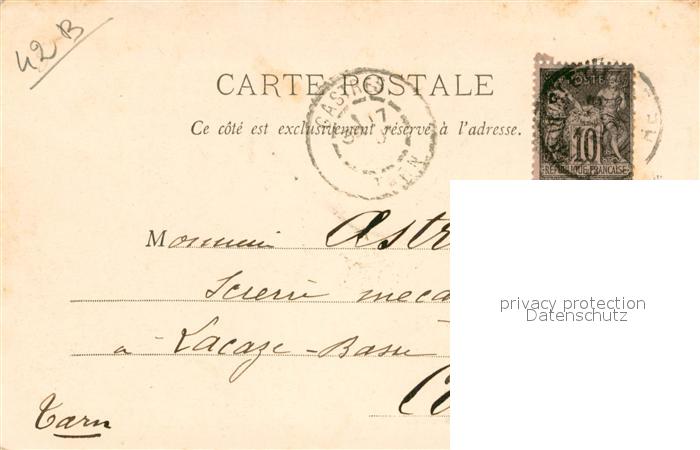 42B
CARTE POSTALE
Ce côté est exclusivement réservé à l'adresse.
CASTRES
17
TARN
POSTES
10
RÉPUBLIQUE FRANÇAISE
Monsieur Astr
Scierie méca
à Lacaze-Basse
Tarn
privacy protection
Datenschutz